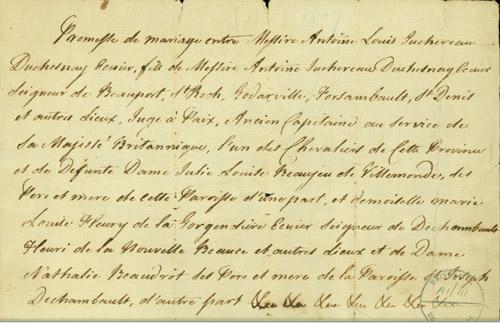 Promesse de mariage entre Messire Antoine Louis Juchereau
Duchesnay Ecuier, fils de Messire Antoine Juchereau Duchesnay Ecuier
Seigneur de Beauport, St Roch, Godarville, Forsambault, St Denis
et autres Lieux, Juge à Paix, Ancien Capitaine au service de
Sa Majesté Britannique, l'un des Chevaliers de Cette Province
et de Défunte Dame Julie Louise Beaujeu de Villemonde, des
Pere et mere de cette Paroisse d'une part, et demoiselle marie
Louise Fleury de la Gorgendière Ecuier Seigneur de Dechambault
Fleuri de la Nouvelle Beauce et autres Lieux et de Dame
Nathalie Beaudrot des Pere et mere de la Paroisse St Joseph
Dechambault, d'autre part